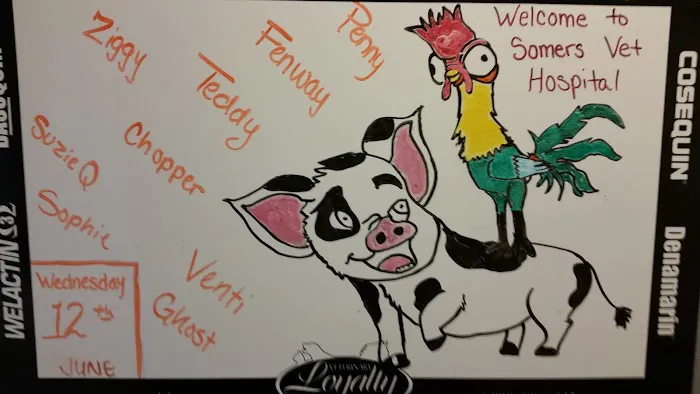 Welcome to
Somers Vet
Hospital
Penny
Fenway
Ziggy
Teddy
Chopper
Suzie Q
Sophie
Venti
Ghost
Wednesday
12th
JUNE
COSEQUIN
Denamarin
WELACTIN
VETERINARY
Loyalty